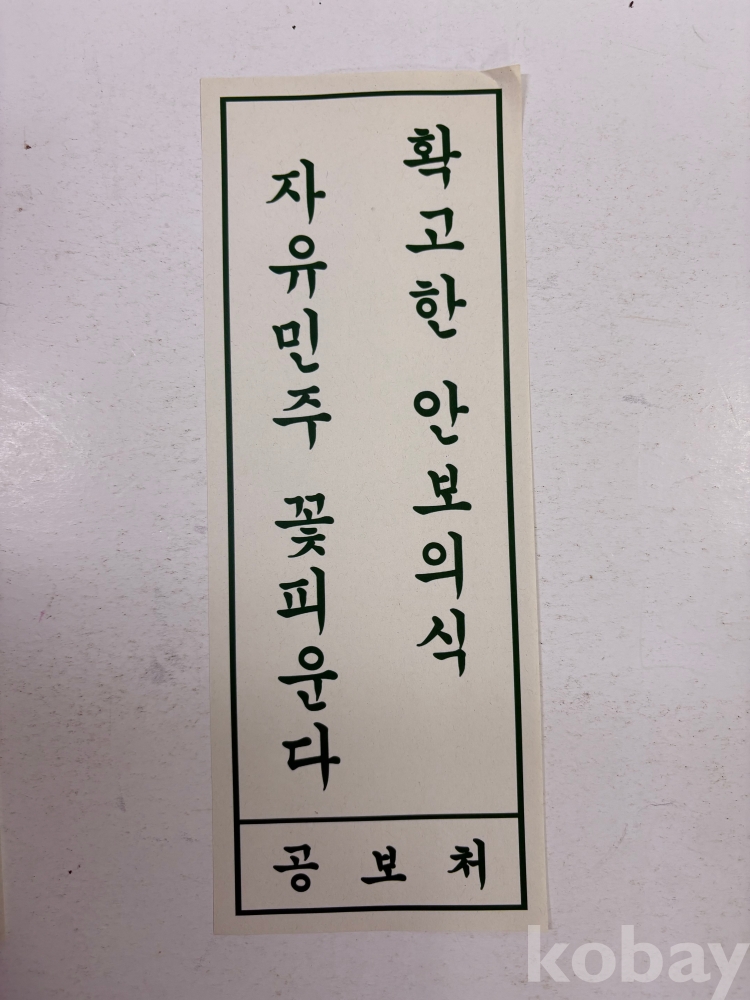 확고한 안보의식
자유민주 꽃피운다
공보처
kobay